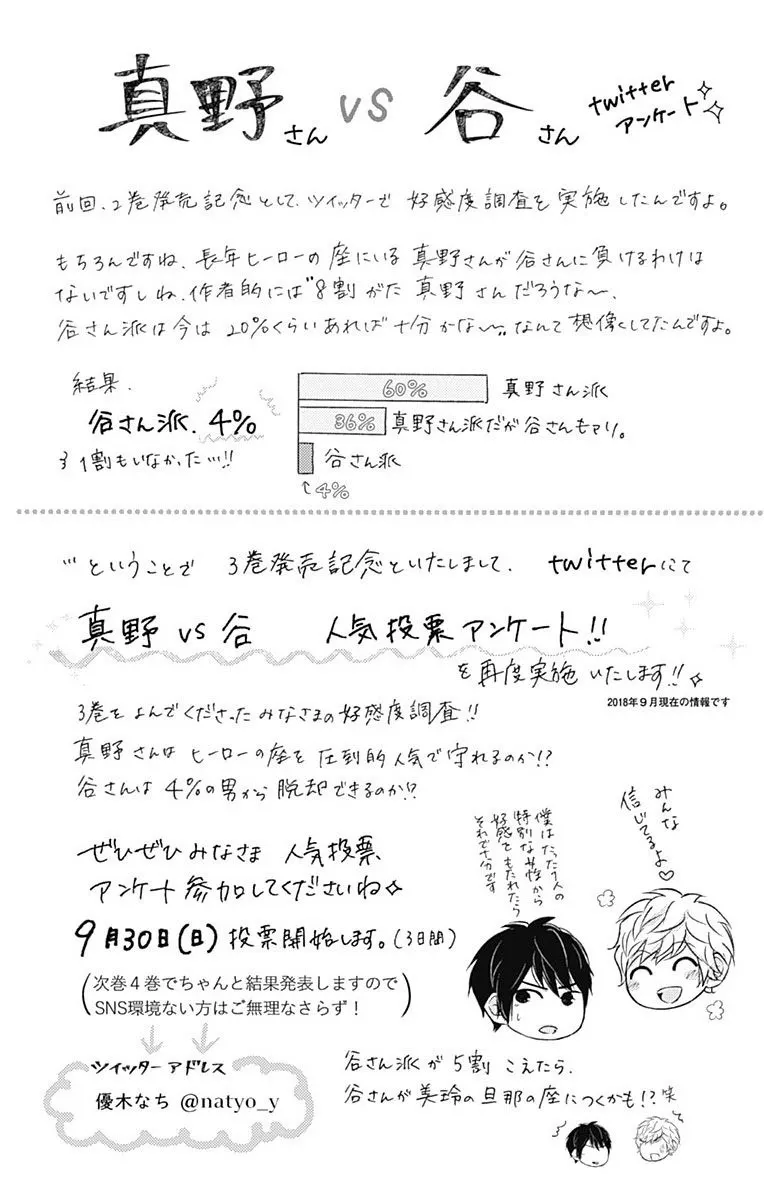 真野さん vs 谷さん twitter
アンケート
前回、2巻発売記念として、ツイッターで 好感度調査を実施したんですよ。
もちろんですね、長年ヒーローの座にいる 真野さんが谷さんに負けるわけは
ないですしね、作者的には"8割がた 真野さんだろうな〜、
谷さん派は今は 20%くらいあれば十分かな〜"なんて想像してたんですよ。
結果、
谷さん派、4%
1割もいなかった…!!
60% 真野さん派
36% 真野さん派だが谷さんもアリ。
谷さん派
4%
…ということで 3巻発売記念といたしまして、twitterにて
真野 vs 谷 人気投票アンケート!!
を再度実施いたします!!
2018年9月現在の情報です
3巻をよんでくださったみなさまの好感度調査!!
真野さんは ヒーローの座を 圧倒的人気で守れるのか!?
谷さんは 4%の男から 脱却できるのか!?
ぜひぜひみなさま 人気投票
アンケート参加してくださいね
9月30日(日)投票開始します。(3日間)
(次巻4巻でちゃんと結果発表しますので
SNS環境ない方はご無理なさらず!)
みんな
信じてるよ♡
僕はたった1人の
特別な女性から
好感をもたれたら
それで十分です
ツイッターアドレス
優木なち @natyo_y
谷さん派が 5割 こえたら、
谷さんが美玲の旦那の座につくかも!?笑